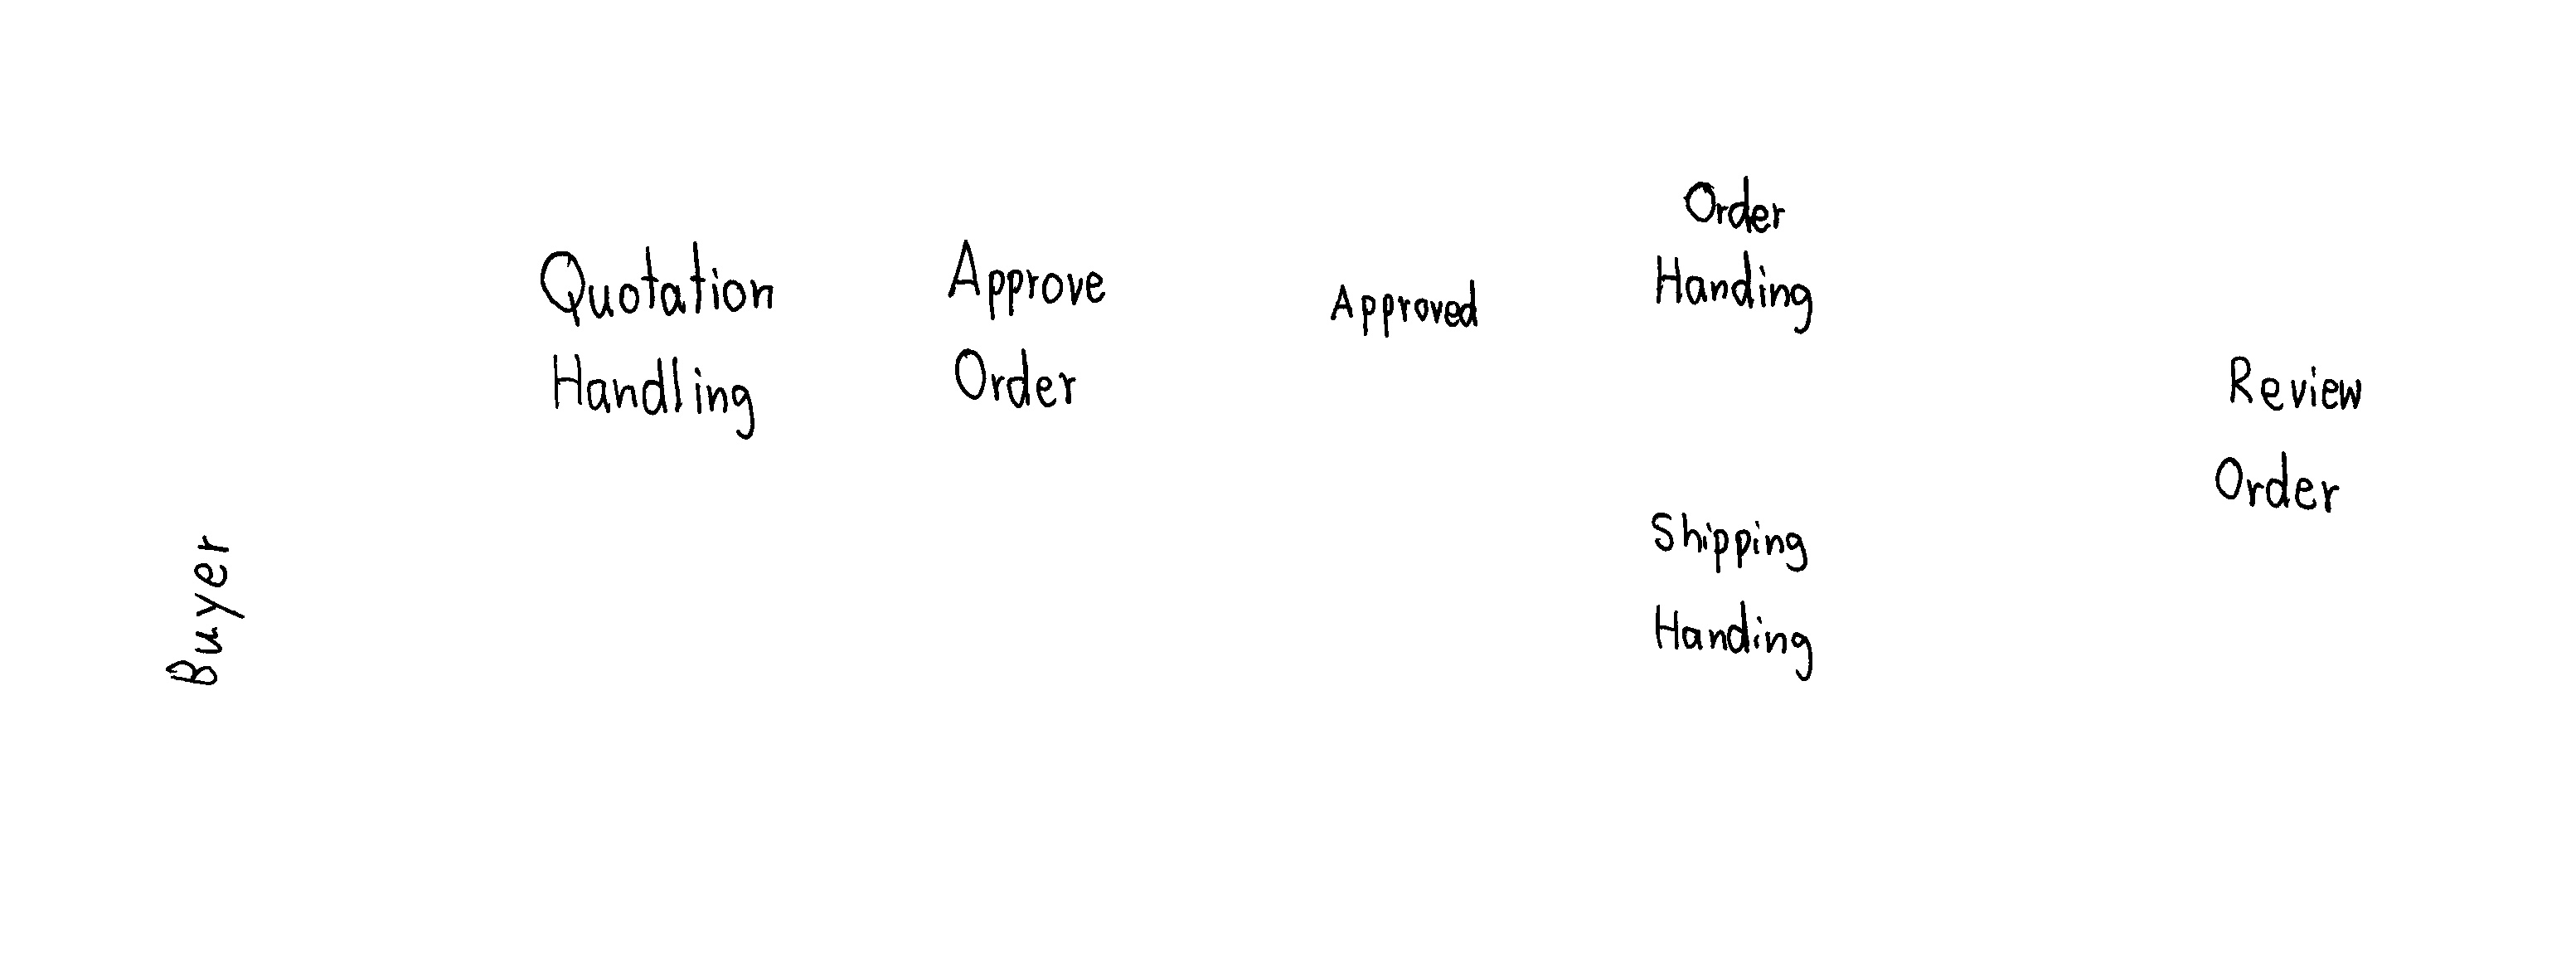 Buyer
Quotation
Handling
Approve
Order
Approved
Order
Handing
Shipping
Handing
Review
Order